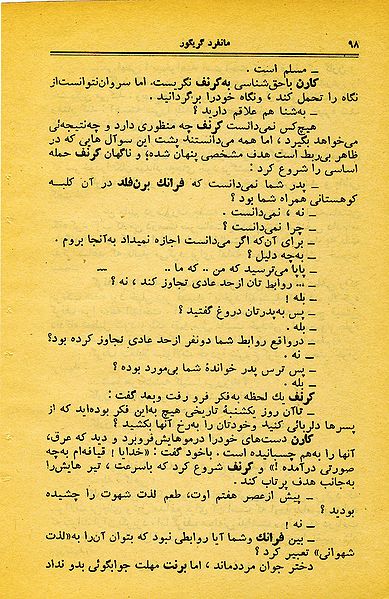 ۹۸ مانفرد گریگور
ــ مسلم است .
کارن باحق‌شناسی به‌کرنف نگریست. اما سروان‌نتوانست‌از
نگاه را تحمل کند ، ونگاه خودرا برگردانید .
ــ به‌شنا هم علاقم دارید ؟
هیچ‌کس نمی‌دانست کرنف چه منظوری دارد و چه‌نتیجه‌ئی
می‌خواهد بگیرد ، اما همه می‌دانستند پشت این سوآل هایی که در
ظاهر بی‌ربط است هدف مشخصی پنهان شده؛ و ناگهان کرنف حمله
اساسی را شروع کرد :
ــ پدر شما نمی‌دانست که فرانك برن‌فلد در آن کلبه
کوهستانی همراه شما بود ؟
ــ نه ، نمی‌دانست .
ــ چرا نمی‌دانست ؟
ــ برای آن‌که اگر می‌دانست اجازه نمیداد به‌آنجا بروم .
ــ به‌چه دلیل ؟
ــ پاپا می‌ترسید که من .. که ما .. ــ
ــ ... روابط تان ازحد عادی تجاوز کند ، نه ؟
ــ بله !
ــ پس به‌پدرتان دروغ گفتید ؟
ــ بله .
ــ درواقع روابط شما دونفر ازحد عادی تجاوز کرده بود؟
ــ نه .
ــ پس ترس پدر خواندهٔ شما بی‌مورد بوده ؟
ــ بله .
کرنف یك لحظه به‌فکر فرو رفت وبعد گفت :
ــ تاآن روز یکشنبهٔ تاریخی هیچ به‌این فکر بوده‌اید که از
پسرها دلربائی کنید وخودتان را به‌رخ آنها بکشید ؟
کارن دست‌های خودرا درموهایش‌فروبرد و دید که عرق،
آنها را به‌هم چسبانیده است . باخود گفت : «خدایا ! قیافه‌ام به‌چه
صورتی درآمده !» و کرنف شروع کرد که باسرعت ، تیر هایش‌را
به‌جانب هدف پرتاب کند .
ــ پیش ازعصر هفتم اوت، طعم لذت شهوت را چشیده
بودید ؟
ــ نه !
ــ بین فرانك وشما آیا روابطی نبود که بتوان آن‌را به«لذت
شهوانی» تعبیر کرد ؟
دختر جوان مرددماند ، اما برنت مهلت جوابگوئی بدو نداد